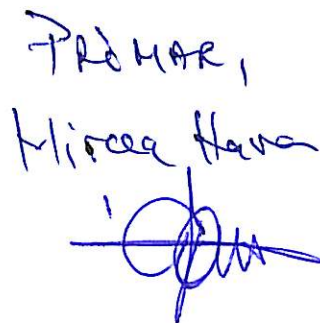 PRIMAR,
Mircea Hava